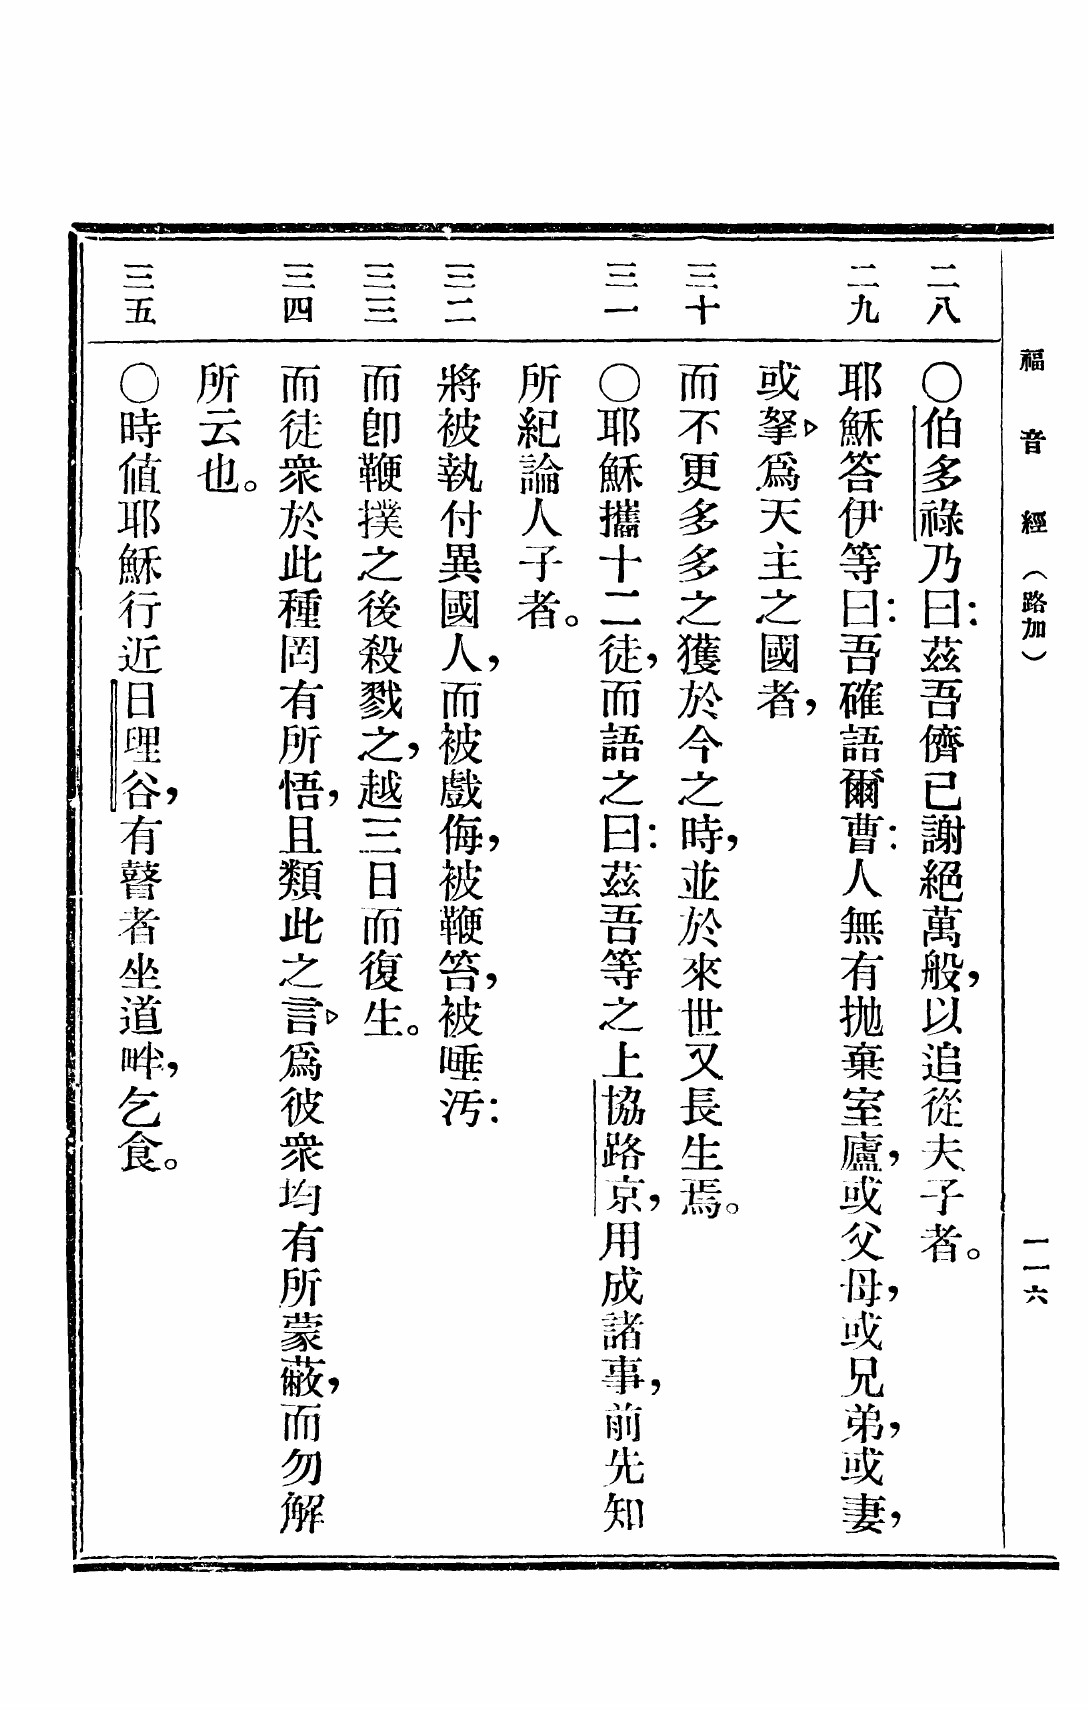 福音經（路加）
一一六
二八
〇伯多祿乃曰：茲吾儕已謝絕萬般，以追從夫子者。
二九
耶穌答伊等曰：吾確語爾曹：人無有拋棄室廬，或父母，或兄弟，或妻，
或孥▷爲天主之國者，
三十
而不更多多之獲於今之時，並於來世又長生焉。
三一
〇耶穌攜十二徒，而語之曰：茲吾等之上協路京，用成諸事，前先知
所紀論人子者。
三二
將被執付異國人，而被戲侮，被鞭笞，被唾汚：
三三
而卽鞭撲之後殺戮之，越三日而復生。
三四
而徒衆於此種罔有所悟，且類此之言▷爲彼衆均有所蒙蔽，而勿解
所云也。
三五
〇時値耶穌行近日理谷，有瞽者坐道畔，乞食。